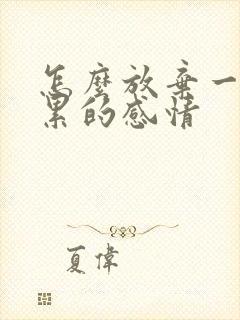 怎麼放棄一
累的感情
夏偉